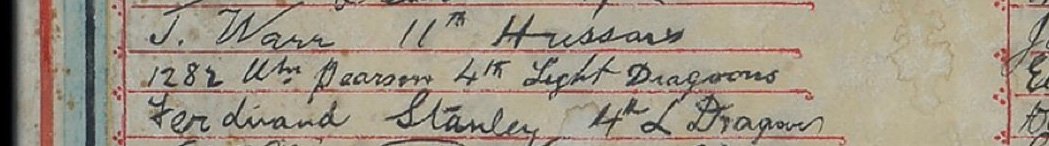 J. Warr 11th Hussars
1282 Wm Pearson 4th Light Dragoons
Ferdinand Stanley 4th L Dragoons